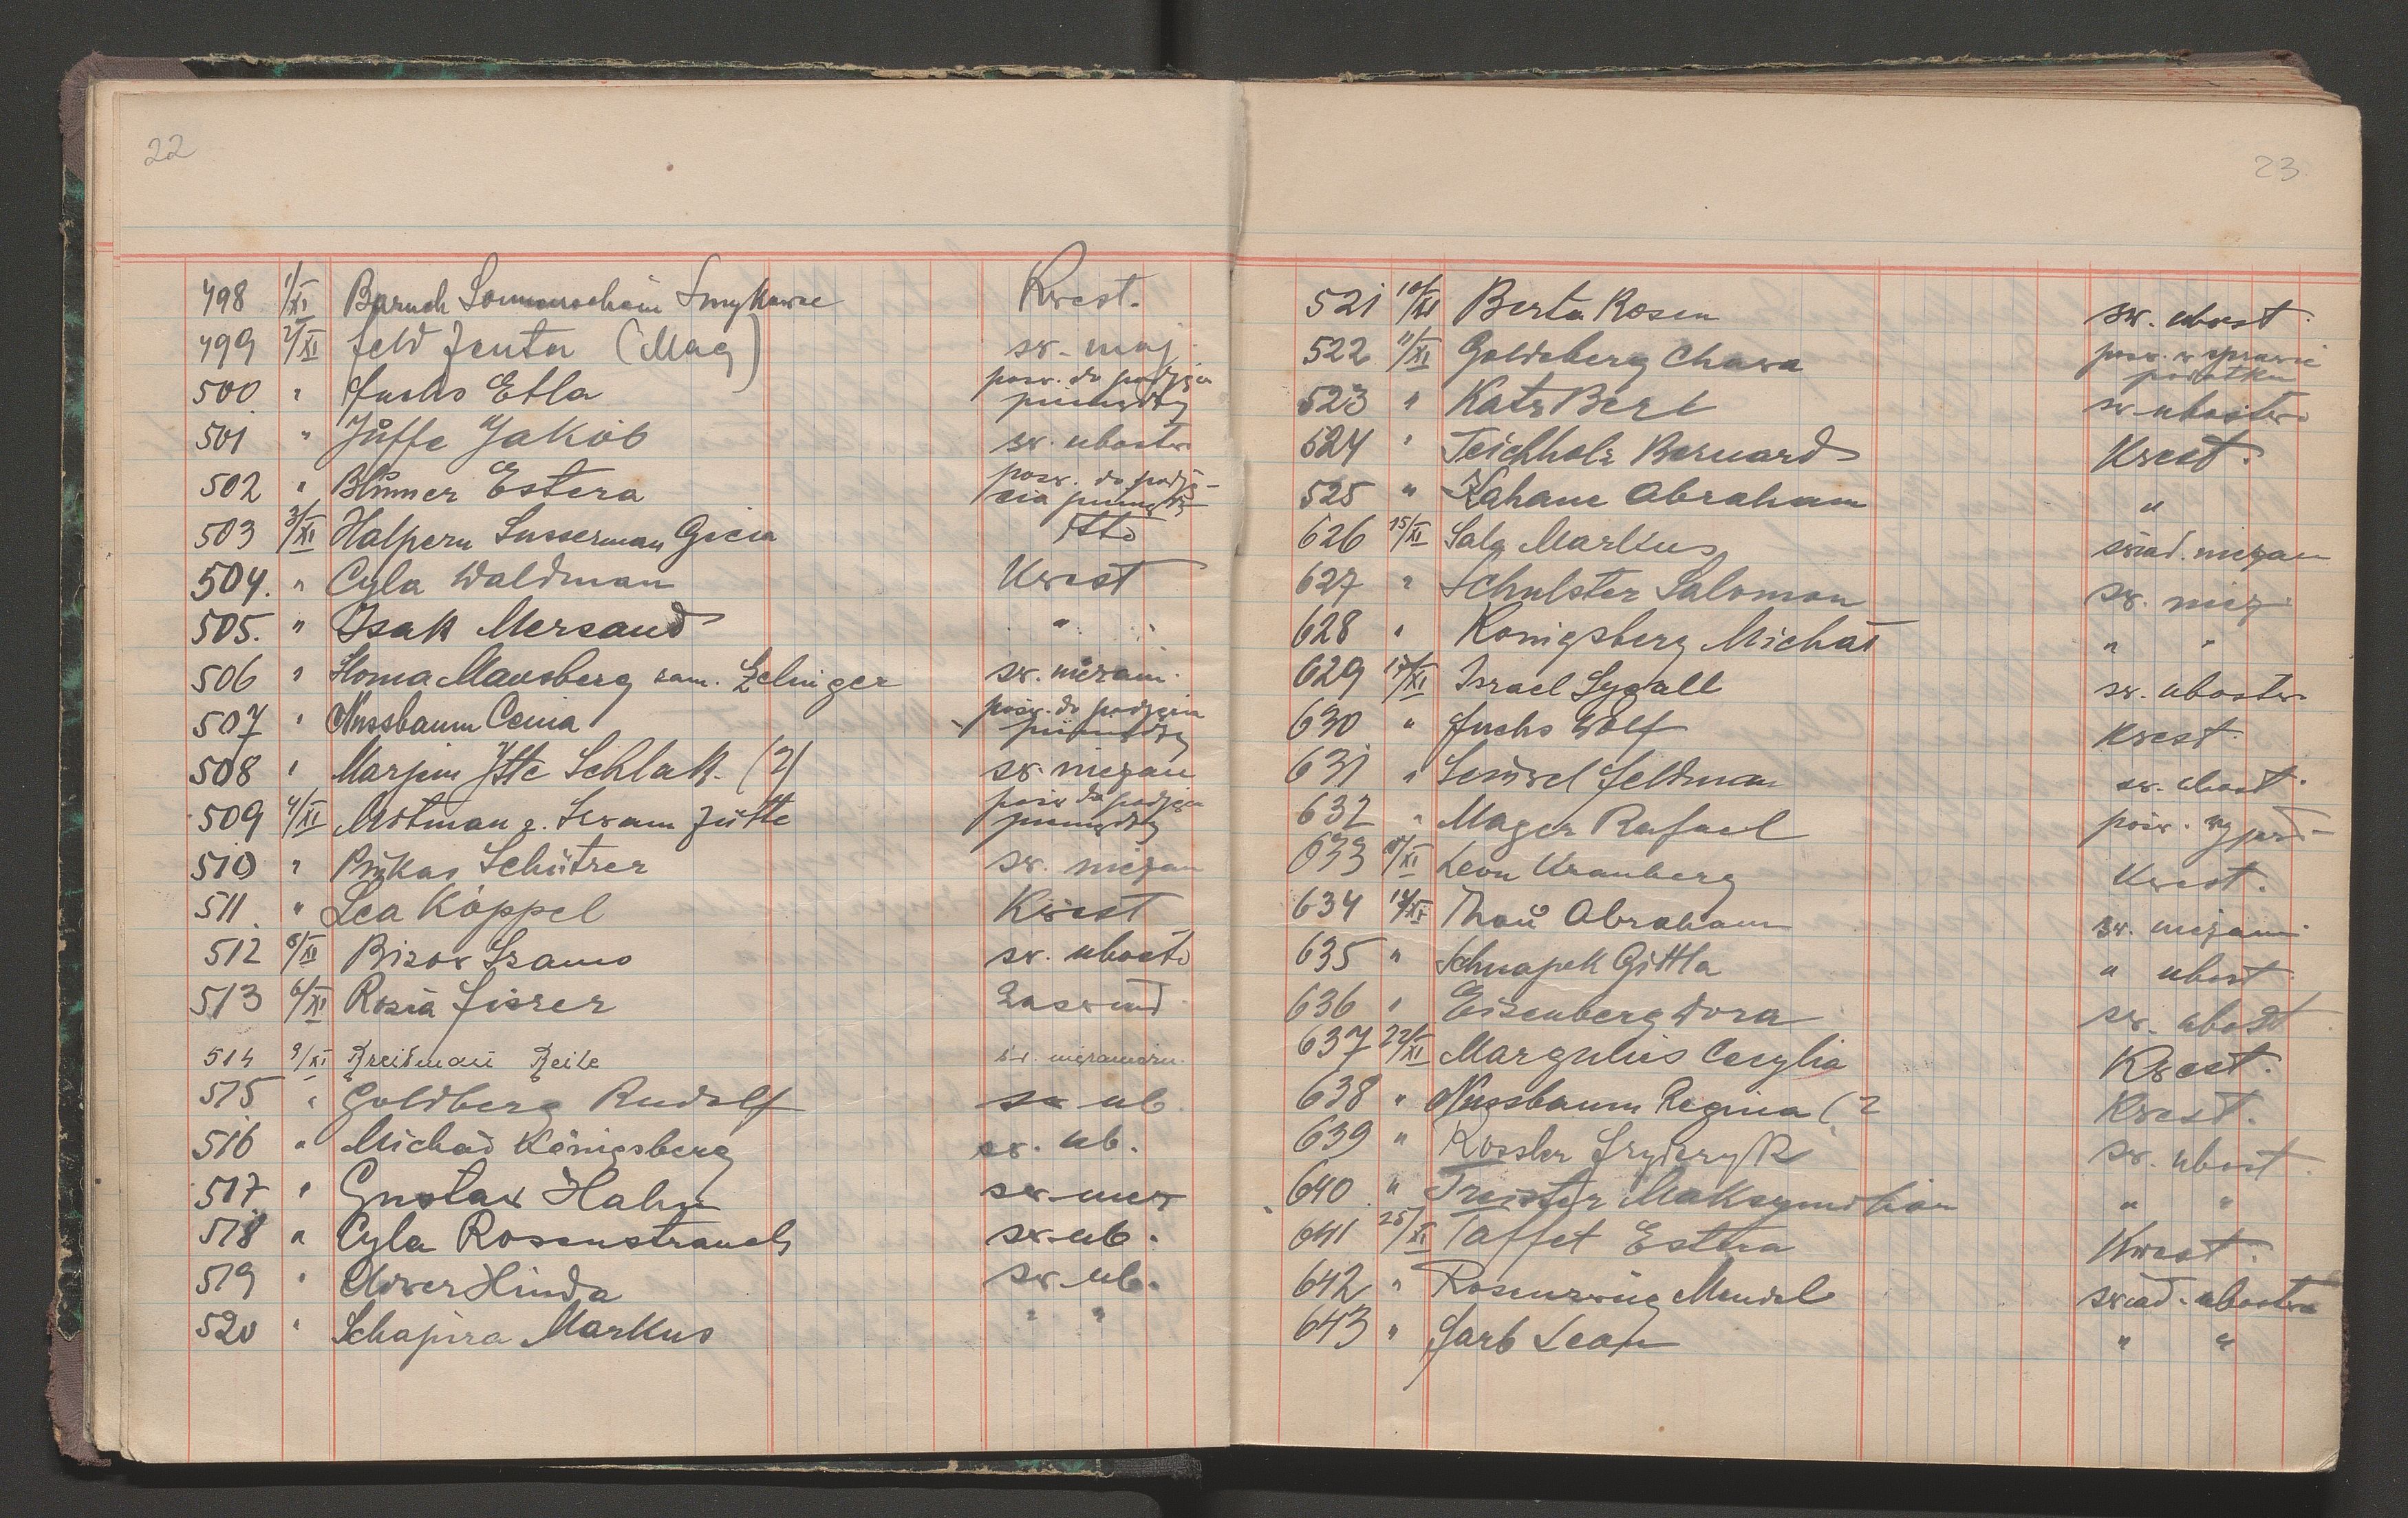 22
498 1/XI Baruch Sonnenschein Kwest.
499 2/XI Feld Jenta (Mag) św. maj.
500 " Fuchs Etla pośw. do podjęcia
pieniędzy
501 " Jŭffe Jakób św. ubostw.
502 " Blŭmer Estera pośw. do podję-
cia pieniędzy
503 3/XI Halpern Susserman Gicia
504. " Cyla Waldman Kwest
505. " Izak Mersand "
506 " Mausberg zam. Zelinger św. niezam.
507 " Nussbaum Cenia pośw. do podjęcia
pieniędzy
508 " Marjem Jtte Schlak (?) św. niezam
509 4/XI Jutte pośw do podjęcia
pieniędzy
510 " Pinkas Schützer św. niezam
511 " Lea Köppel Kwest
512 św. ubostw
513 6/XI Rozia Fiszer Zaświad
514 9/XI Kreidman Reize św. niezamożn.
515 " Goldberg Rudolf św ub.
516 " Michał Königsberg św. ub.
517 " Gustav Hahn św. niez
518 " Cyla Rosenstrauch św. ub.
519 " Hinda św. ub.
520 " Schapira Markus " "
23
521 10/XI Berta Rosen św. ubost.
522 11/XI Goldsberg Chawa pośw. w sprawie
podatku
523 " Katz Berl św. ubostw.
524 " Teichholz Bernard Kwest.
525 " Kahane Abraham "
626 15/XI Sala Markus świad. niezam
627 " Schulster Salomon św. niez
628 " Konigsberg Michał " "
629 17/XI Israel Segall św. ubostw.
630 " Fuchs Wolf Kwest.
631 " Feldman św. ubost.
632 " Mager Rafael pośw.
633 Leon Kranberg Kwest.
634 Thaŭ Abraham św. niezam
635 " Schnapek Gittla " ubost
636 " Eisenberg Dora św. ubost
637 22/XI Margulies Cecylia Kwest.
638 " Nussbaum Regina (? Kwest.
639 " Kossler Fryderyk św. ubost.
640 " Treister Maksymilian " "
641 25/XI Taffet Estera Kwest.
642 " Rosenzweig Mendel świad. ubostwa
643 " Farb Leon " "